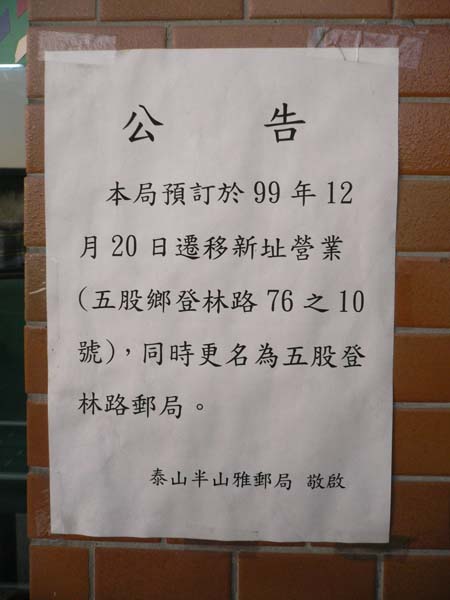 公告
本局預訂於 99 年 12
月 20 日遷移新址營業
(五股鄉登林路 76 之 10
號)，同時更名為五股登
林路郵局。
泰山半山雅郵局 敬啟